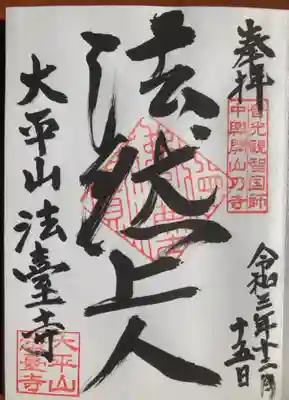 奉拝
普光観智国師
中興開山の寺
令和三年十二月
十五日
法然上人
大平山 法臺寺
大平山
法臺寺